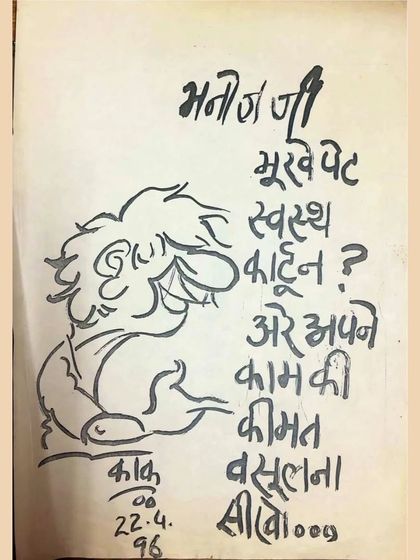 मनोज जी
भूखे पेट
स्वस्थ
कार्टून ?
अरे अपने
काम की
कीमत
वसूलना
सीखो...
काक
22.4.
96